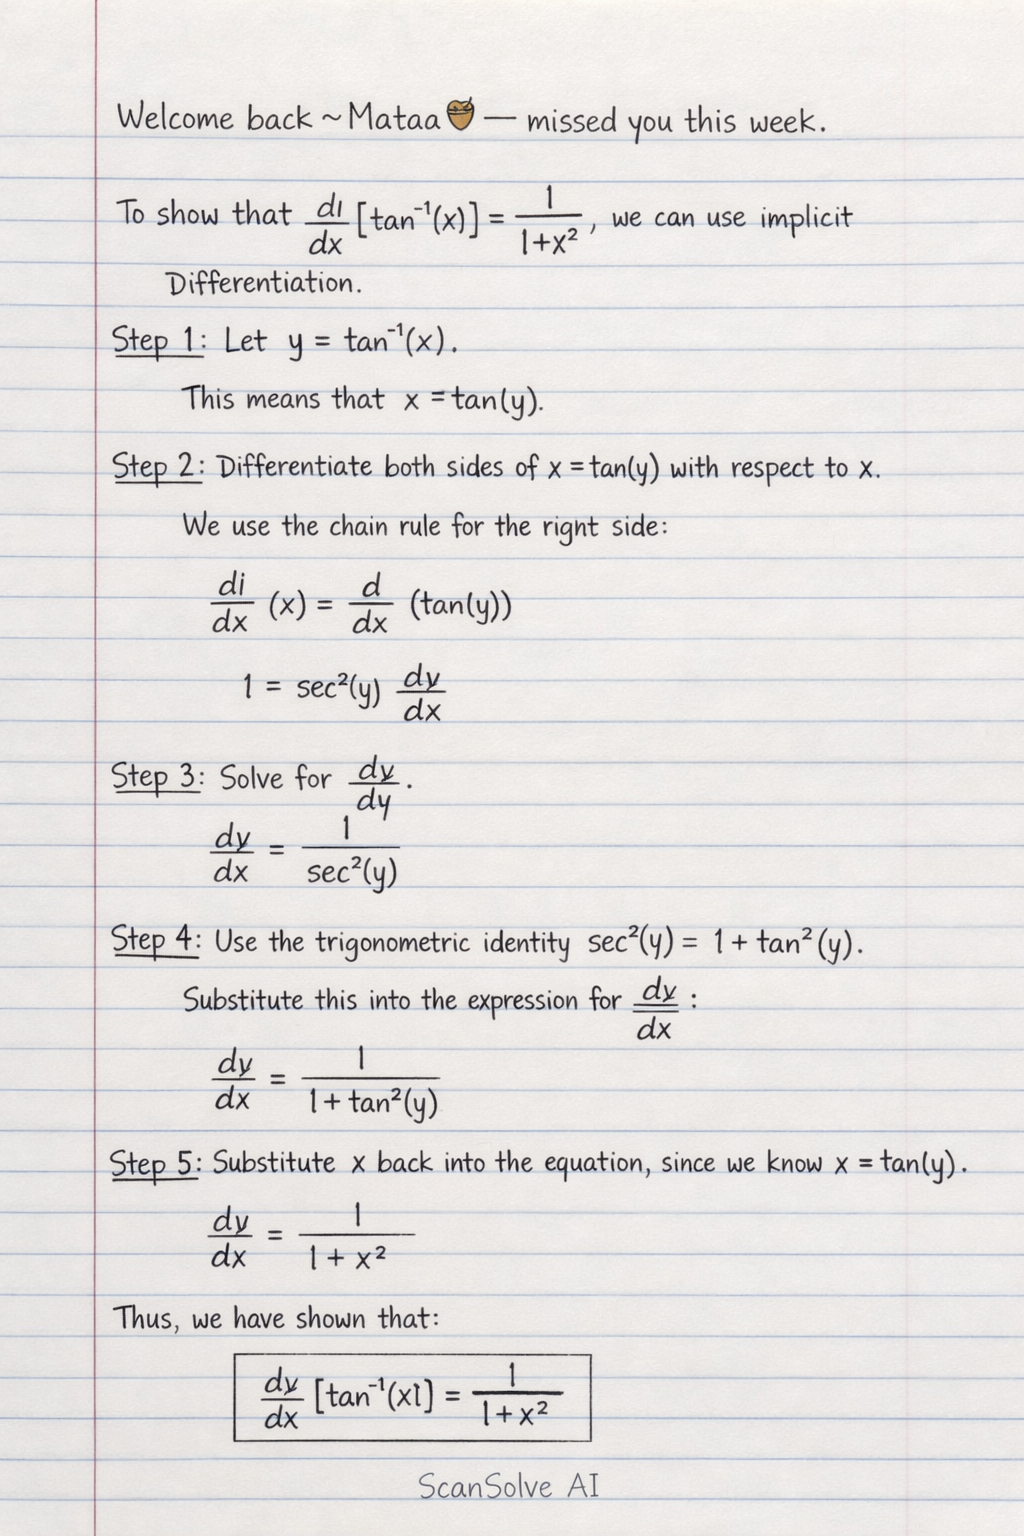 Welcome back ~Mataa🌰 — missed you this week.
To show that dı/dx [tan⁻¹(x)] = 1/(1+x²), we can use implicit
Differentiation.
Step 1: Let y = tan⁻¹(x).
This means that x = tan(y).
Step 2: Differentiate both sides of x = tan(y) with respect to x.
We use the chain rule for the right side:
di/dx (x) = d/dx (tan(y))
1 = sec²(y) dy/dx
Step 3: Solve for dy/dy.
dy/dx = 1/sec²(y)
Step 4: Use the trigonometric identity sec²(y) = 1 + tan²(y).
Substitute this into the expression for dy/dx :
dy/dx = 1/(1 + tan²(y))
Step 5: Substitute x back into the equation, since we know x = tan(y).
dy/dx = 1/(1 + x²)
Thus, we have shown that:
dy/dx [tan⁻¹(x1] = 1/(1+x²)
ScanSolve AI